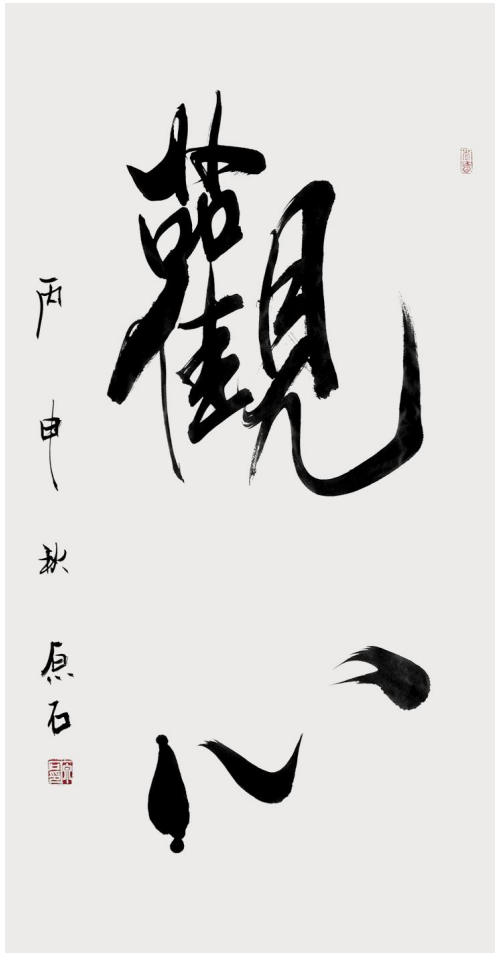 觀心
丙申秋原石